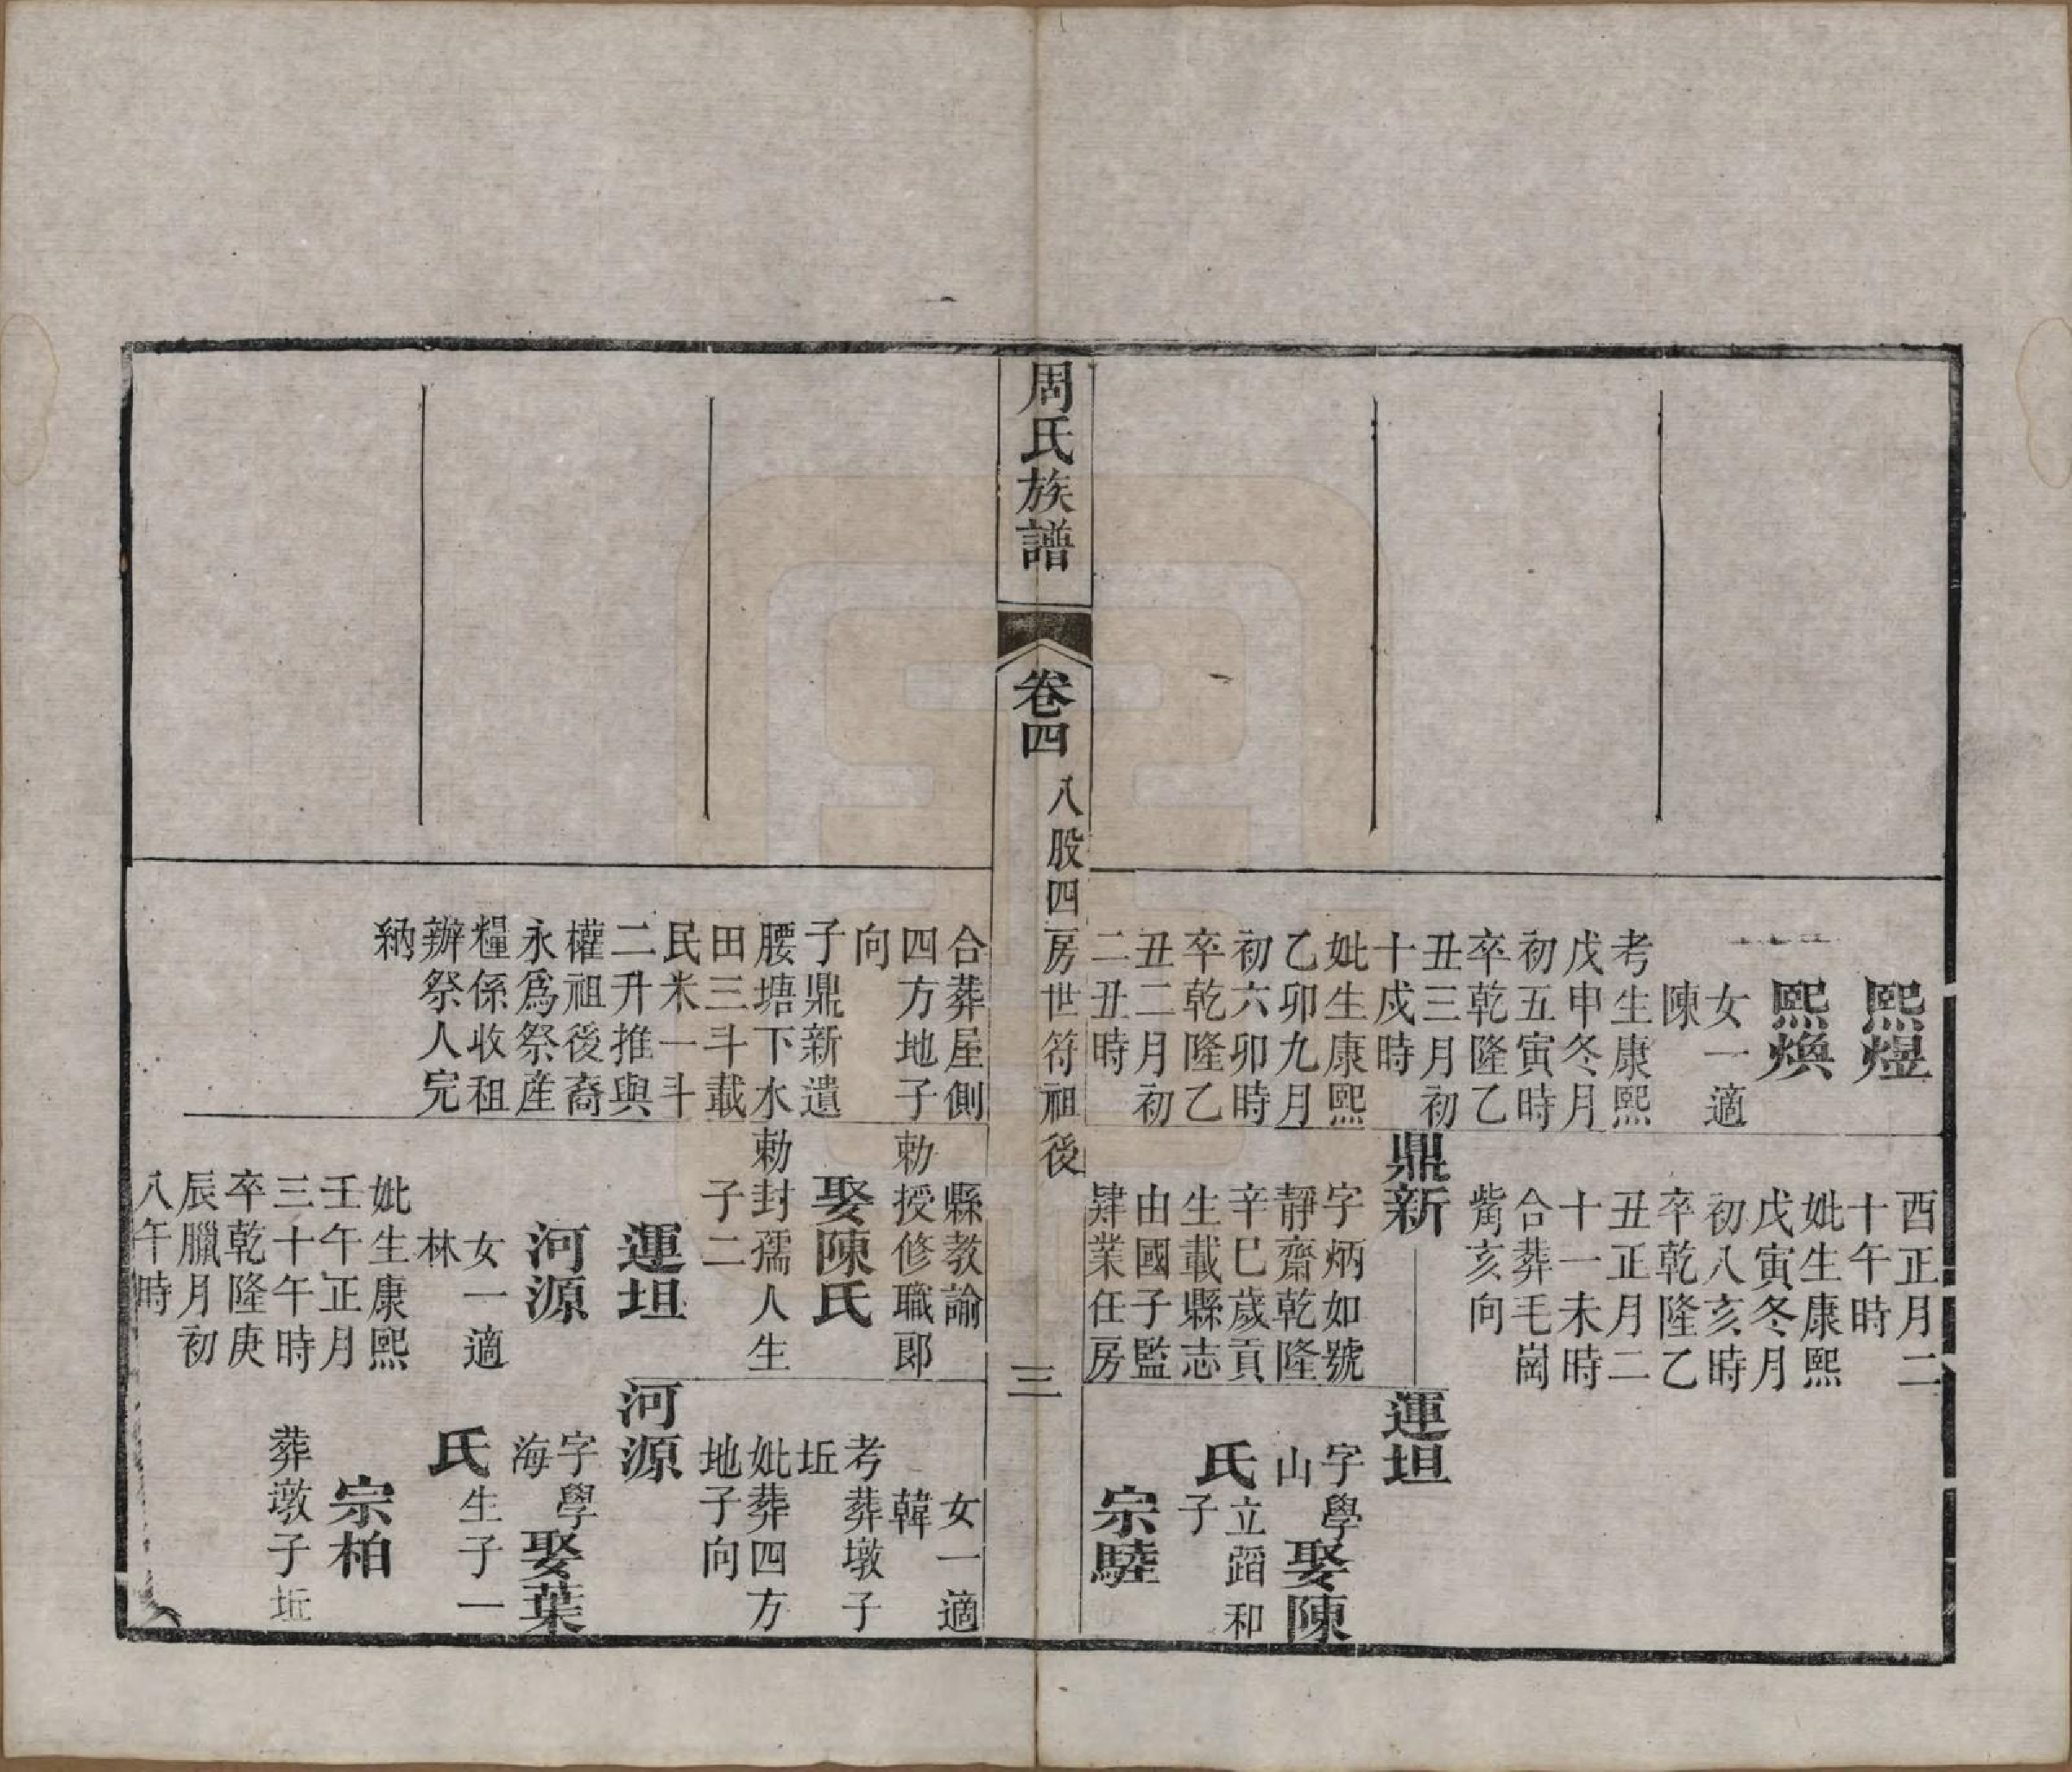 熙煜
熙煥
女一適
陳
考生康熙
戊申冬月
初五寅時
卒乾隆乙
丑三月初
十戌時
妣生康熙
乙卯九月
初六卯時
卒乾隆乙
丑二月初
二丑時
酉正月二
十午時
妣生康熙
戊寅冬月
初八亥時
卒乾隆乙
丑正月二
十一未時
合葬毛崗
觜亥向
鼎新
字炳如號
靜齋乾隆
辛巳歲貢
生載縣志
由國子監
肄業任房
運坦
字學
山
娶陳
氏
立蹈和
子
宗駐
周氏族譜
卷四
八股四房世符祖後
三
合葬屋側
四方地子
向
子鼎新遺
腰塘下水
田三斗載
民米一斗
二升推與
權祖後裔
永爲祭產
糧係收租
辦祭人完
納
縣教諭
勅授修職郎
娶陳氏
勅封孺人生
子二
運坦
河源
女一適
林
妣生康熙
壬午正月
三十午時
卒乾隆庚
辰臘月初
八午時
女一適
韓
考葬墩子
坵
妣葬四方
地子向
河源
字學
海
娶葉
氏
生子一
宗柏
葬墩子坵